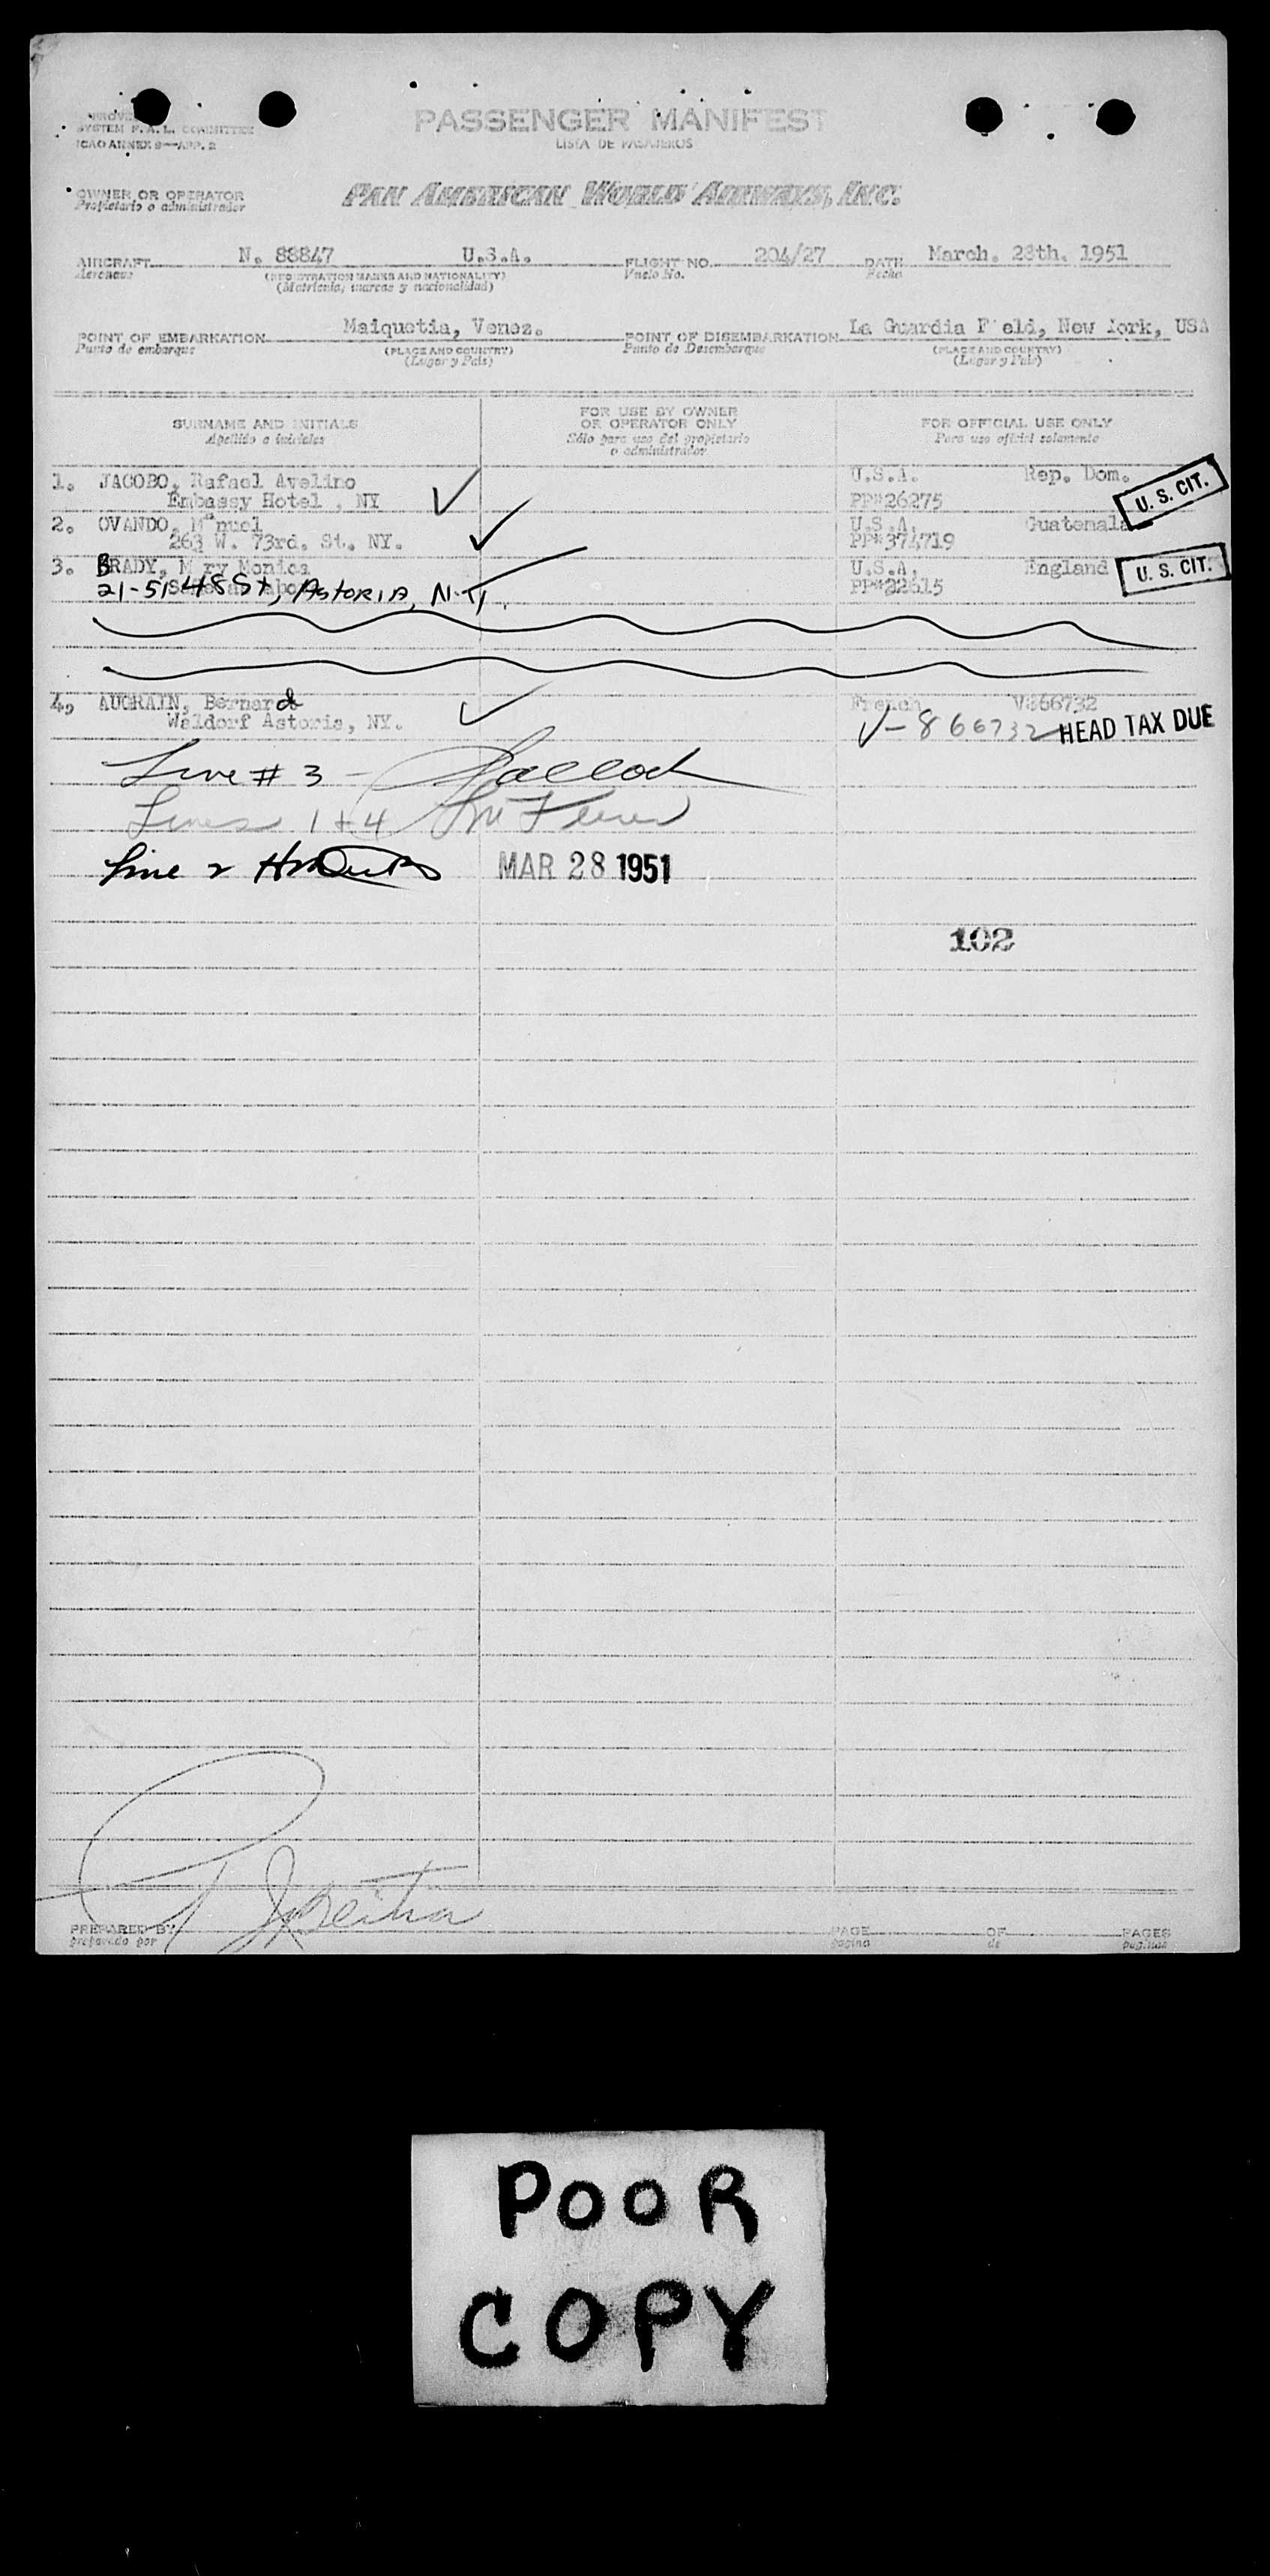 SYSTEM F.A.L. COMMITTEE
ICAO ANNEX 9—APP. 2
PASSENGER MANIFEST
LISTA DE PASAJEROS
OWNER OR OPERATOR
Propietario o administrador
PAN AMERICAN WORLD AIRWAYS, INC.
AIRCRAFT N. 88847 U.S.A. FLIGHT NO. 204/27 DATE March. 28th. 1951
Aeronave (REGISTRATION MARKS AND NATIONALITY) Vuelo No. Fecha
(Matricula, marcas y nacionalidad)
POINT OF EMBARKATION Maiquetia, Venez. POINT OF DISEMBARKATION La Guardia F eld, New York, USA
Punto de embarque (PLACE AND COUNTRY) Punto de Desembarque (PLACE AND COUNTRY)
(Lugar y Pais) (Lugar y Pais)
SURNAME AND INITIALS FOR USE BY OWNER OR OPERATOR ONLY FOR OFFICIAL USE ONLY
Apellido e iniciales Sólo para uso del propietario o administrador Para uso oficial solamente
1. JACOBO, Rafael Avelino U.S.A. Rep. Dom. U. S. CIT.
Embassy Hotel , NY PP#26275
2. OVANDO, Manuel U.S.A. Guatemala
263 W. 73rd. St. NY. PP#374719
3. BRADY, M ry Monica U.S.A. England U. S. CIT.
21-51 48 St, ASTORIA, N.Y. PP#22615
4, AUGRAIN, Bernard French V866732
Waldorf Astoria, NY. V-866732 HEAD TAX DUE
Line # 3 -
Lines 1 + 4
Line 2 MAR 28 1951
102
PREPARED BY PAGE OF PAGES
preparado por pagina de paginas
POOR
COPY